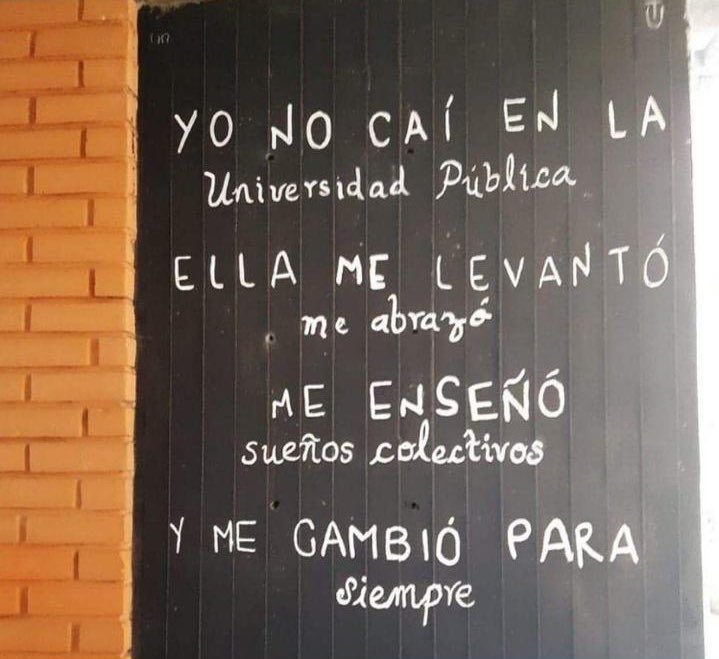 YO NO CAÍ EN LA
Universidad Pública
ELLA ME LEVANTÓ
me abrazó
ME ENSEÑÓ
sueños colectivos
Y ME CAMBIÓ PARA
siempre